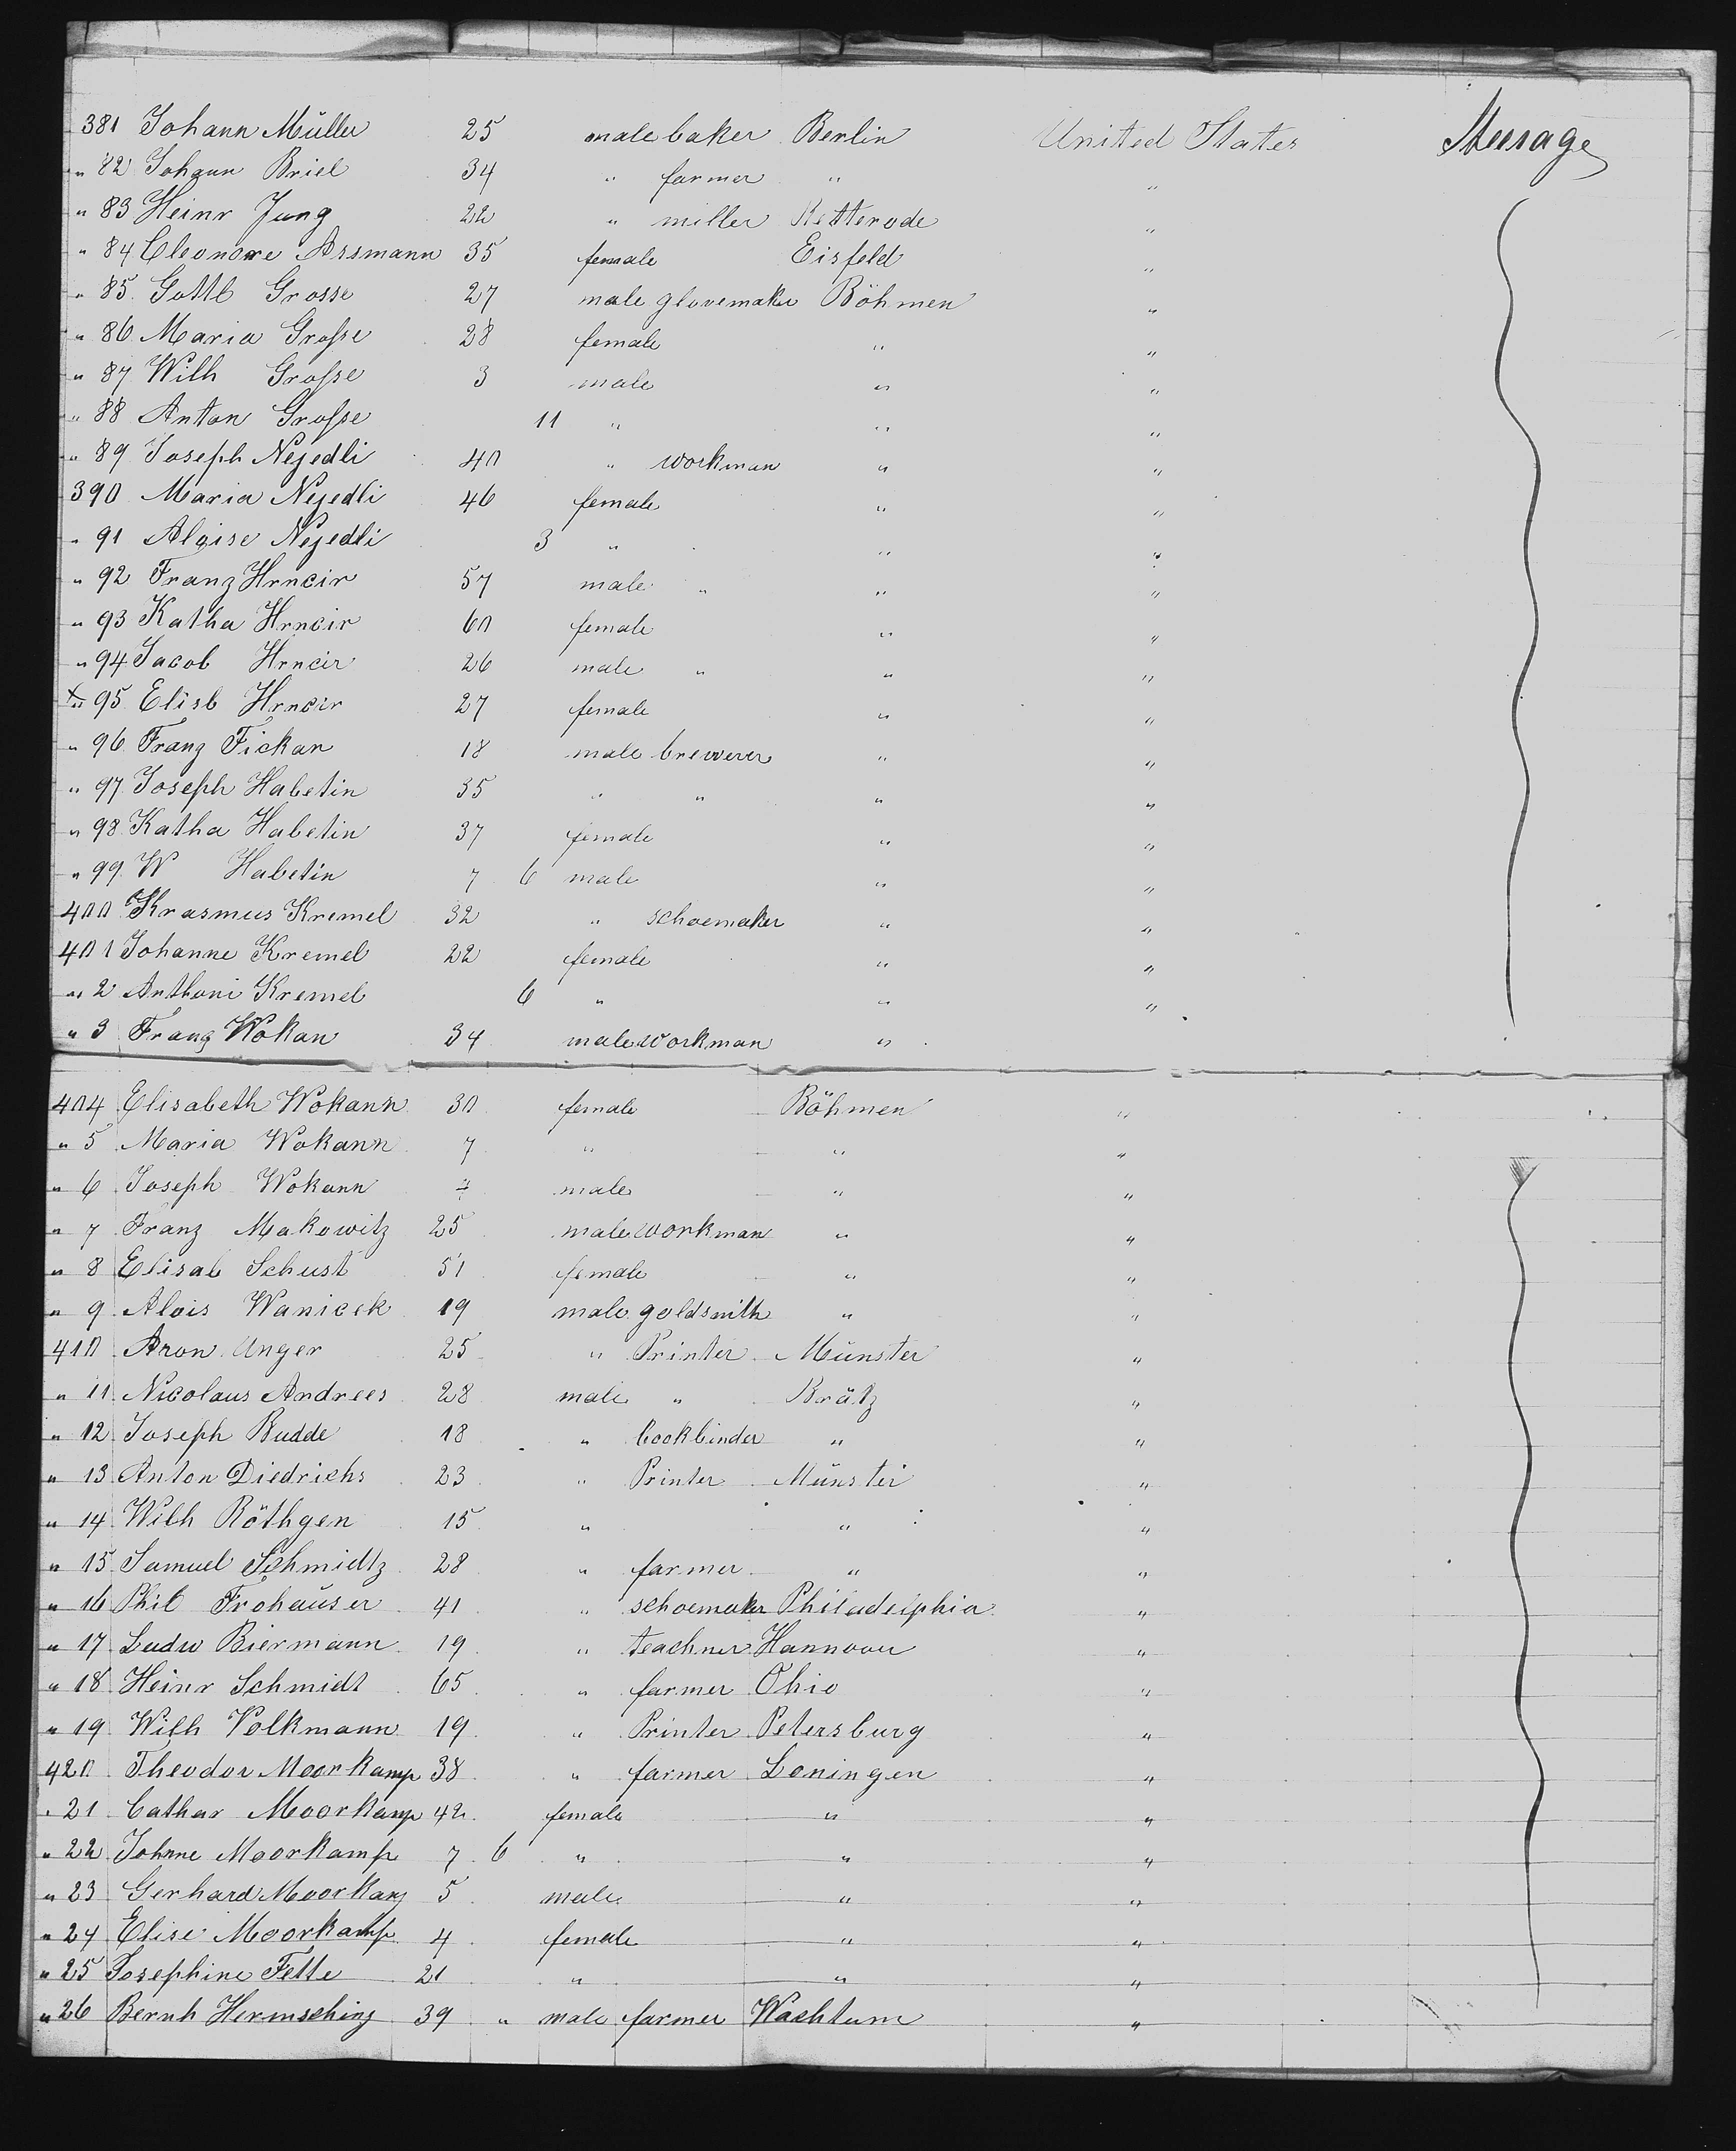 381 Johann Müller 25 male baker Berlin United States Steerage
" 82 Johann Briel 34 " farmer " "
" 83 Heinr Jung 22 " miller Retterode "
" 84 Eleonore Assmann 35 female Eisfeld "
" 85 Gottl Grosse 27 male glovemaker Böhmen "
" 86 Maria Grosse 28 female " "
" 87 Wilh Grosse 3 male " "
" 88 Anton Grosse 11 " " "
" 89 Joseph Nejedli 40 " workman " "
390 Maria Nejedli 46 female " "
" 91 Aloise Nejedli 3 " " "
" 92 Franz Hrncir 57 male " " "
" 93 Katha Hrncir 60 female " "
" 94 Jacob Hrncir 26 male " " "
" 95 Elisb Hrncir 27 female " "
" 96 Franz Fickar 18 male brewerer " "
" 97 Joseph Habetin 35 " " " "
" 98 Katha Habetin 37 female " "
" 99 W Habetin 7 6 male " "
400 Krasmus Kremel 32 " schoemaker " "
401 Johanne Kremel 22 female " "
" 2 Anthoni Kremel 6 " " "
" 3 Franz Wokan 34 male workman "
404 Elisabeth Wokann 30 female Böhmen "
" 5 Maria Wokann 7 " " "
" 6 Joseph Wokann male " "
" 7 Franz Makowitz 25 male workman " "
" 8 Elisab Schust 51 female " "
" 9 Alois Wanicek 19 male goldsmith " "
410 Aron Unger 25 " Printer Münster "
" 11 Nicolaus Andrees 28 male " Brätz "
" 12 Joseph Budde 18 " bookbinder " "
" 13 Anton Diedrichs 23 " Printer Münster "
" 14 Wilh Röthgen 15 " " "
" 15 Samuel Schmidtz 28 " farmer " "
" 16 Phil Frohäuser 41 " schoemaker Philadelphia "
" 17 Ludw Biermann 19 " teachner Hannover "
" 18 Heinr Schmidt 65 " farmer Ohio "
" 19 Wilh Volkmann 19 " Printer Petersburg "
420 Theodor Moorkamp 38 " farmer Loningen "
" 21 Cathar Moorkamp 42 female " "
" 22 Johnne Moorkamp 7 6 " " "
" 23 Gerhard Moorkamp 5 male " "
" 24 Elise Moorkamp 4 female " "
" 25 Josephine Fette 21 " " "
" 26 Bernh Hermsching 39 " male farmer Wachtum "